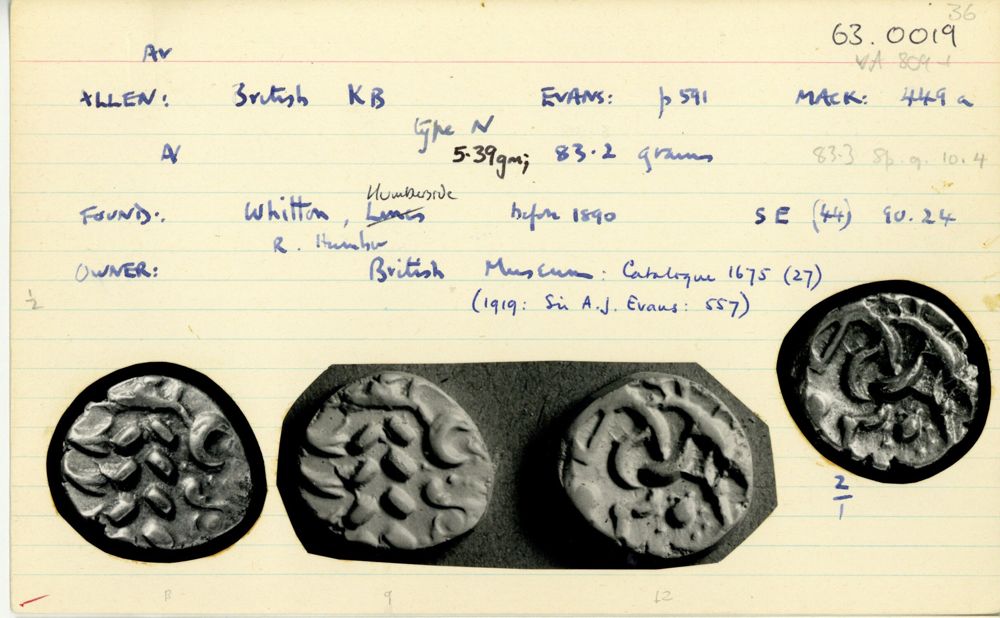 36
63.0019
AV
VA 809-1
ALLEN: British KB EVANS: p 591 MACK: 449 a
type N
AV 5.39gm; 83.2 grams 83.3 Sp. g. 10.4
Humberside
FOUND: Whitton, Lincs before 1890 SE (44) 90.24
R. Humber
OWNER: British Museum: Catalogue 1675 (27)
½
(1919: Sir A.J. Evans: 557)
2/1
8 9 12